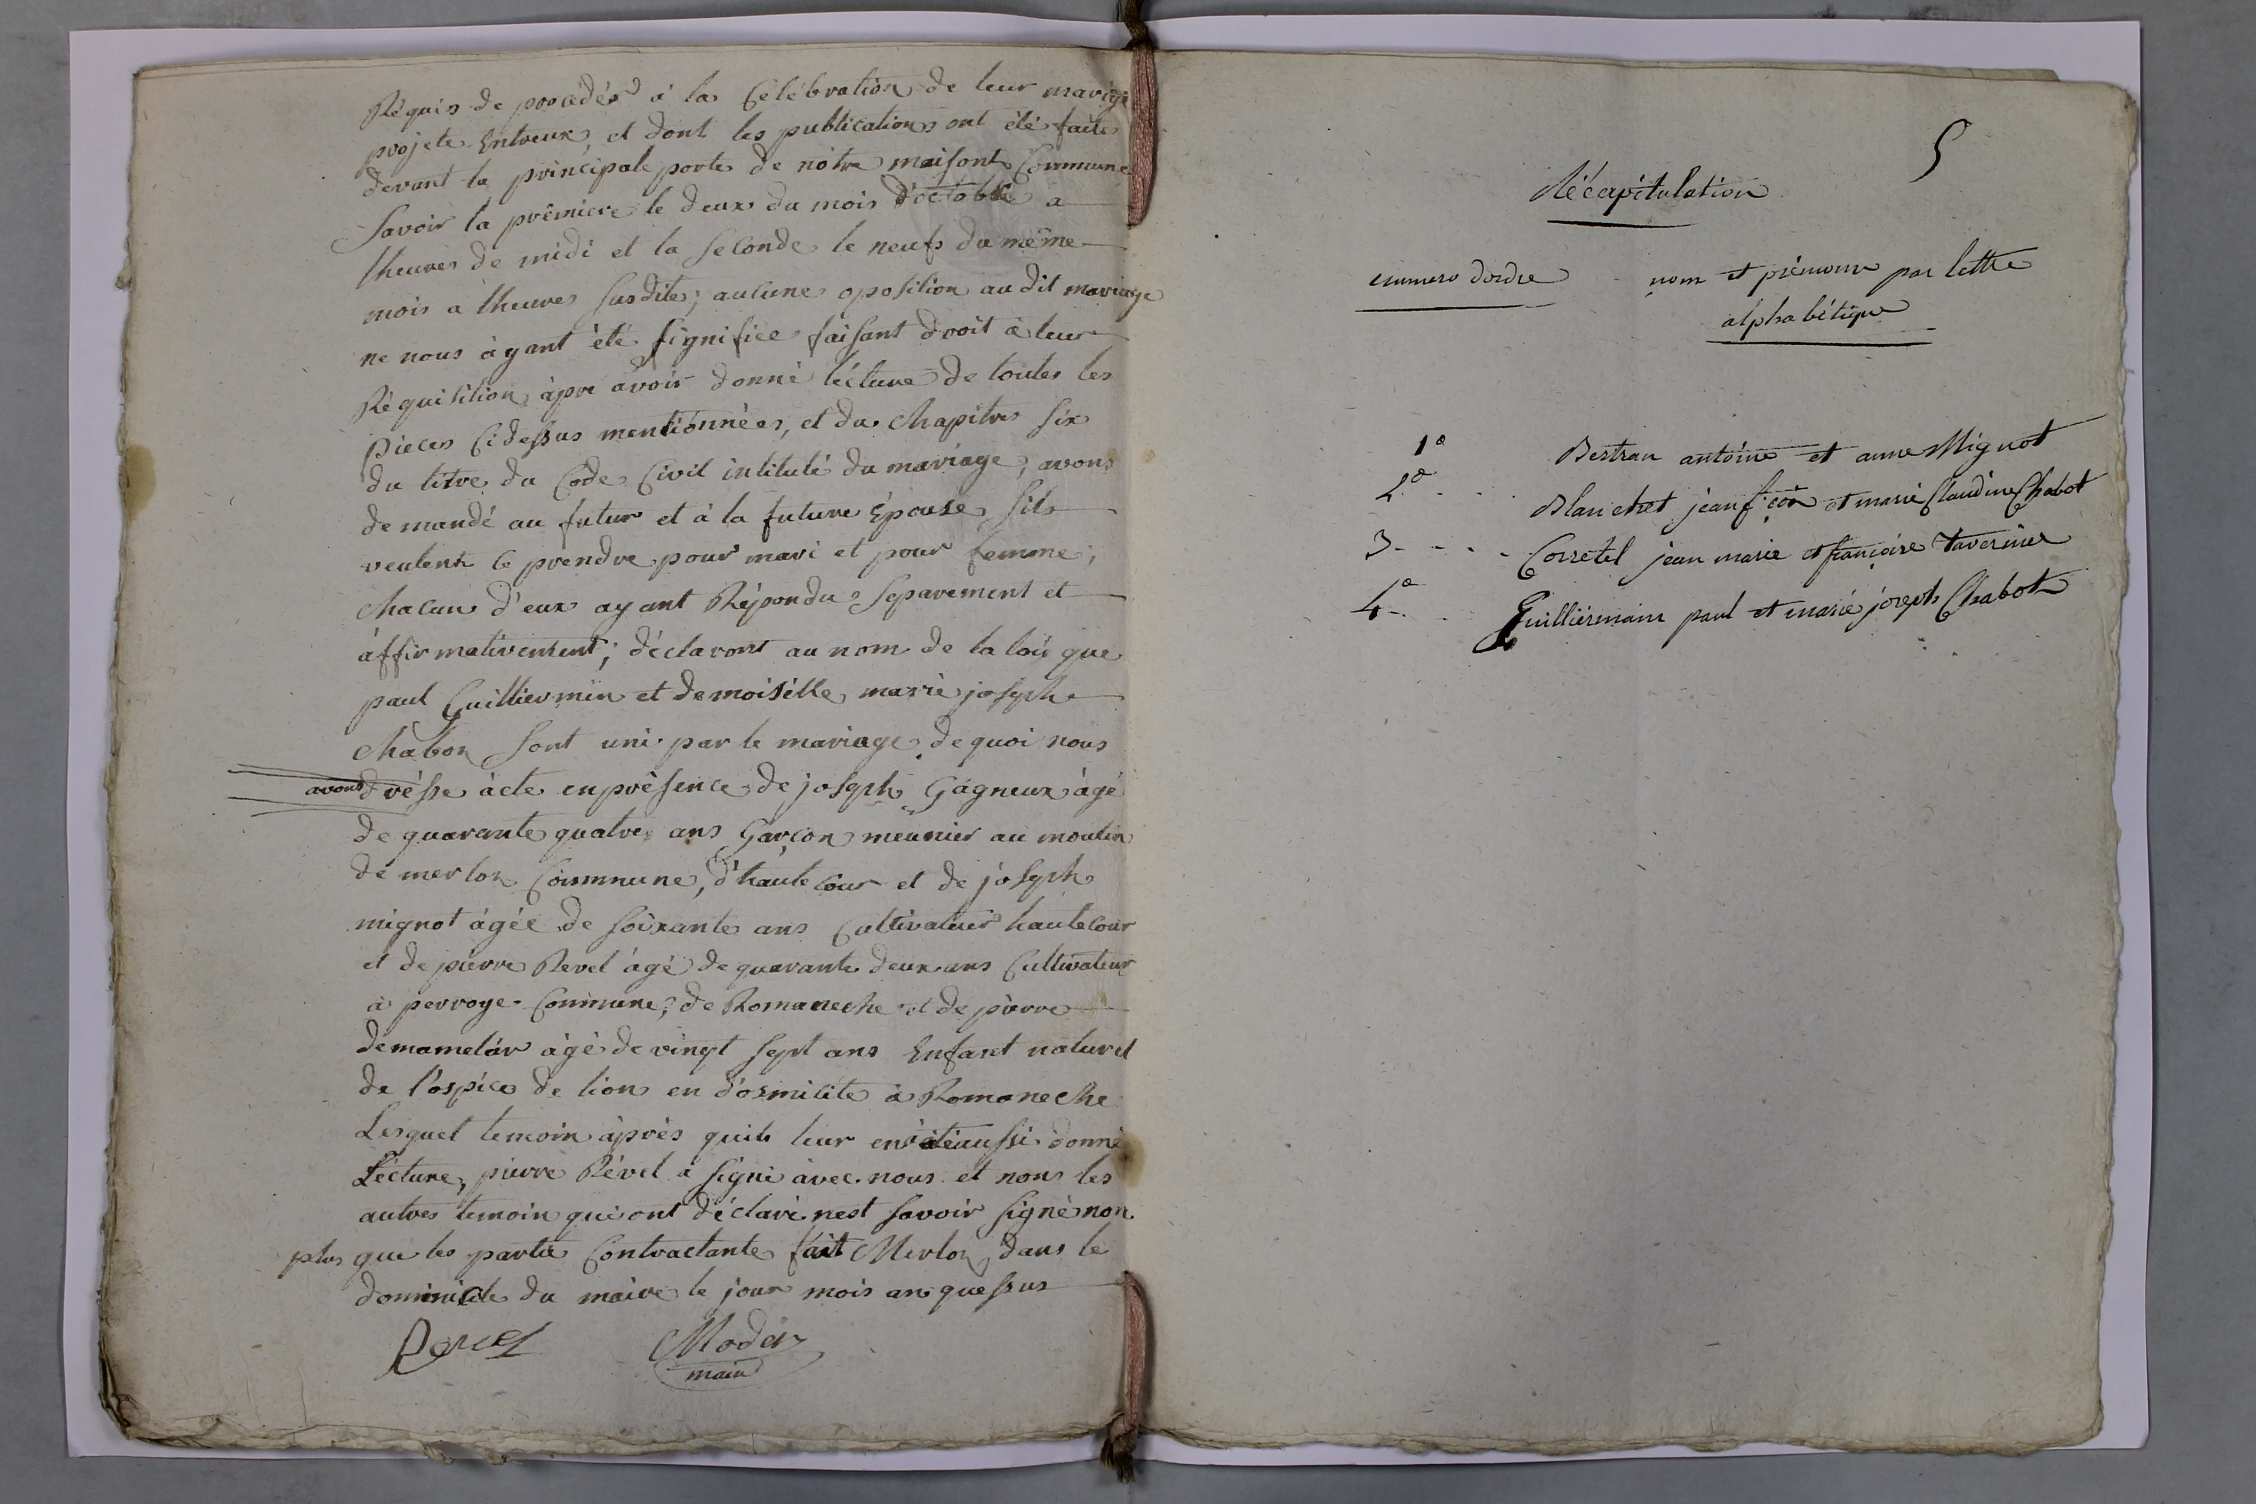 Réquis de procédér à la Célébration de leur mariage
projeté Entreux, et dont les publications ont été faites
devant la principale porte de nôtre maisont Commune
Savoir la prêmiere le deux du mois d'octobre a
lheures de midi et la Seconde le neufs du même
mois a lheures susdites; aucune oposition au dit mariage
ne nous àyant été signifiée faisant droit à leur
Réquisition àpré avoir donné lécture de toutes les
pièces Cidessus mentionnées, et du Chapitres Six
du titre du Côde Civil intitulé du mariage, avons
demandé au futur et à la future Épouse Sils
veulent ce prendre pour mari et pour femme;
chacun d'eux ayant Répondu séparement et
àffirmativement; déclarons au nom de la loi que
paul Guilliermin et demoisélle marie joseph
Chabon sont uni par le mariage, de quoi nous
avons drésse àcte en présence de joseph Gagneux àgé
de quarante quatre ans Garçon meunier au moulin
de merlon Commune, d'hautecour et de joseph
mignot àgée de soixante ans Cultivateur hautecour
et de pierre Revel àgé de quarante deux ans Cultivateur
à perroye Commune, de Romaneche et de pierre
demamelár àgé de vingt sept ans Enfant naturel
de l'ospice de lion en dosmilite à Romaneche
Lesquel temoin àprès quils leur en àtéaussi donné
Lécture, pierre Révél à signé àvec nous et non les
autres temoin qui ont déclaré nest savoir signé non
plus que les partie Contractante fait Merlon dans le
dominicile du maire le jour mois an quessus
Revel Modér
maire
5
Récapitulation
numero dordre nom et prénoms par lettre
alphabétique
1° Bertran antoine et anne Mignot
2° Blanchet jean fçois et marie Claudine Chabot
3 Corretel jean marie et françoise Tavernier
4° Guilliermain paul et marie joseph Chabot